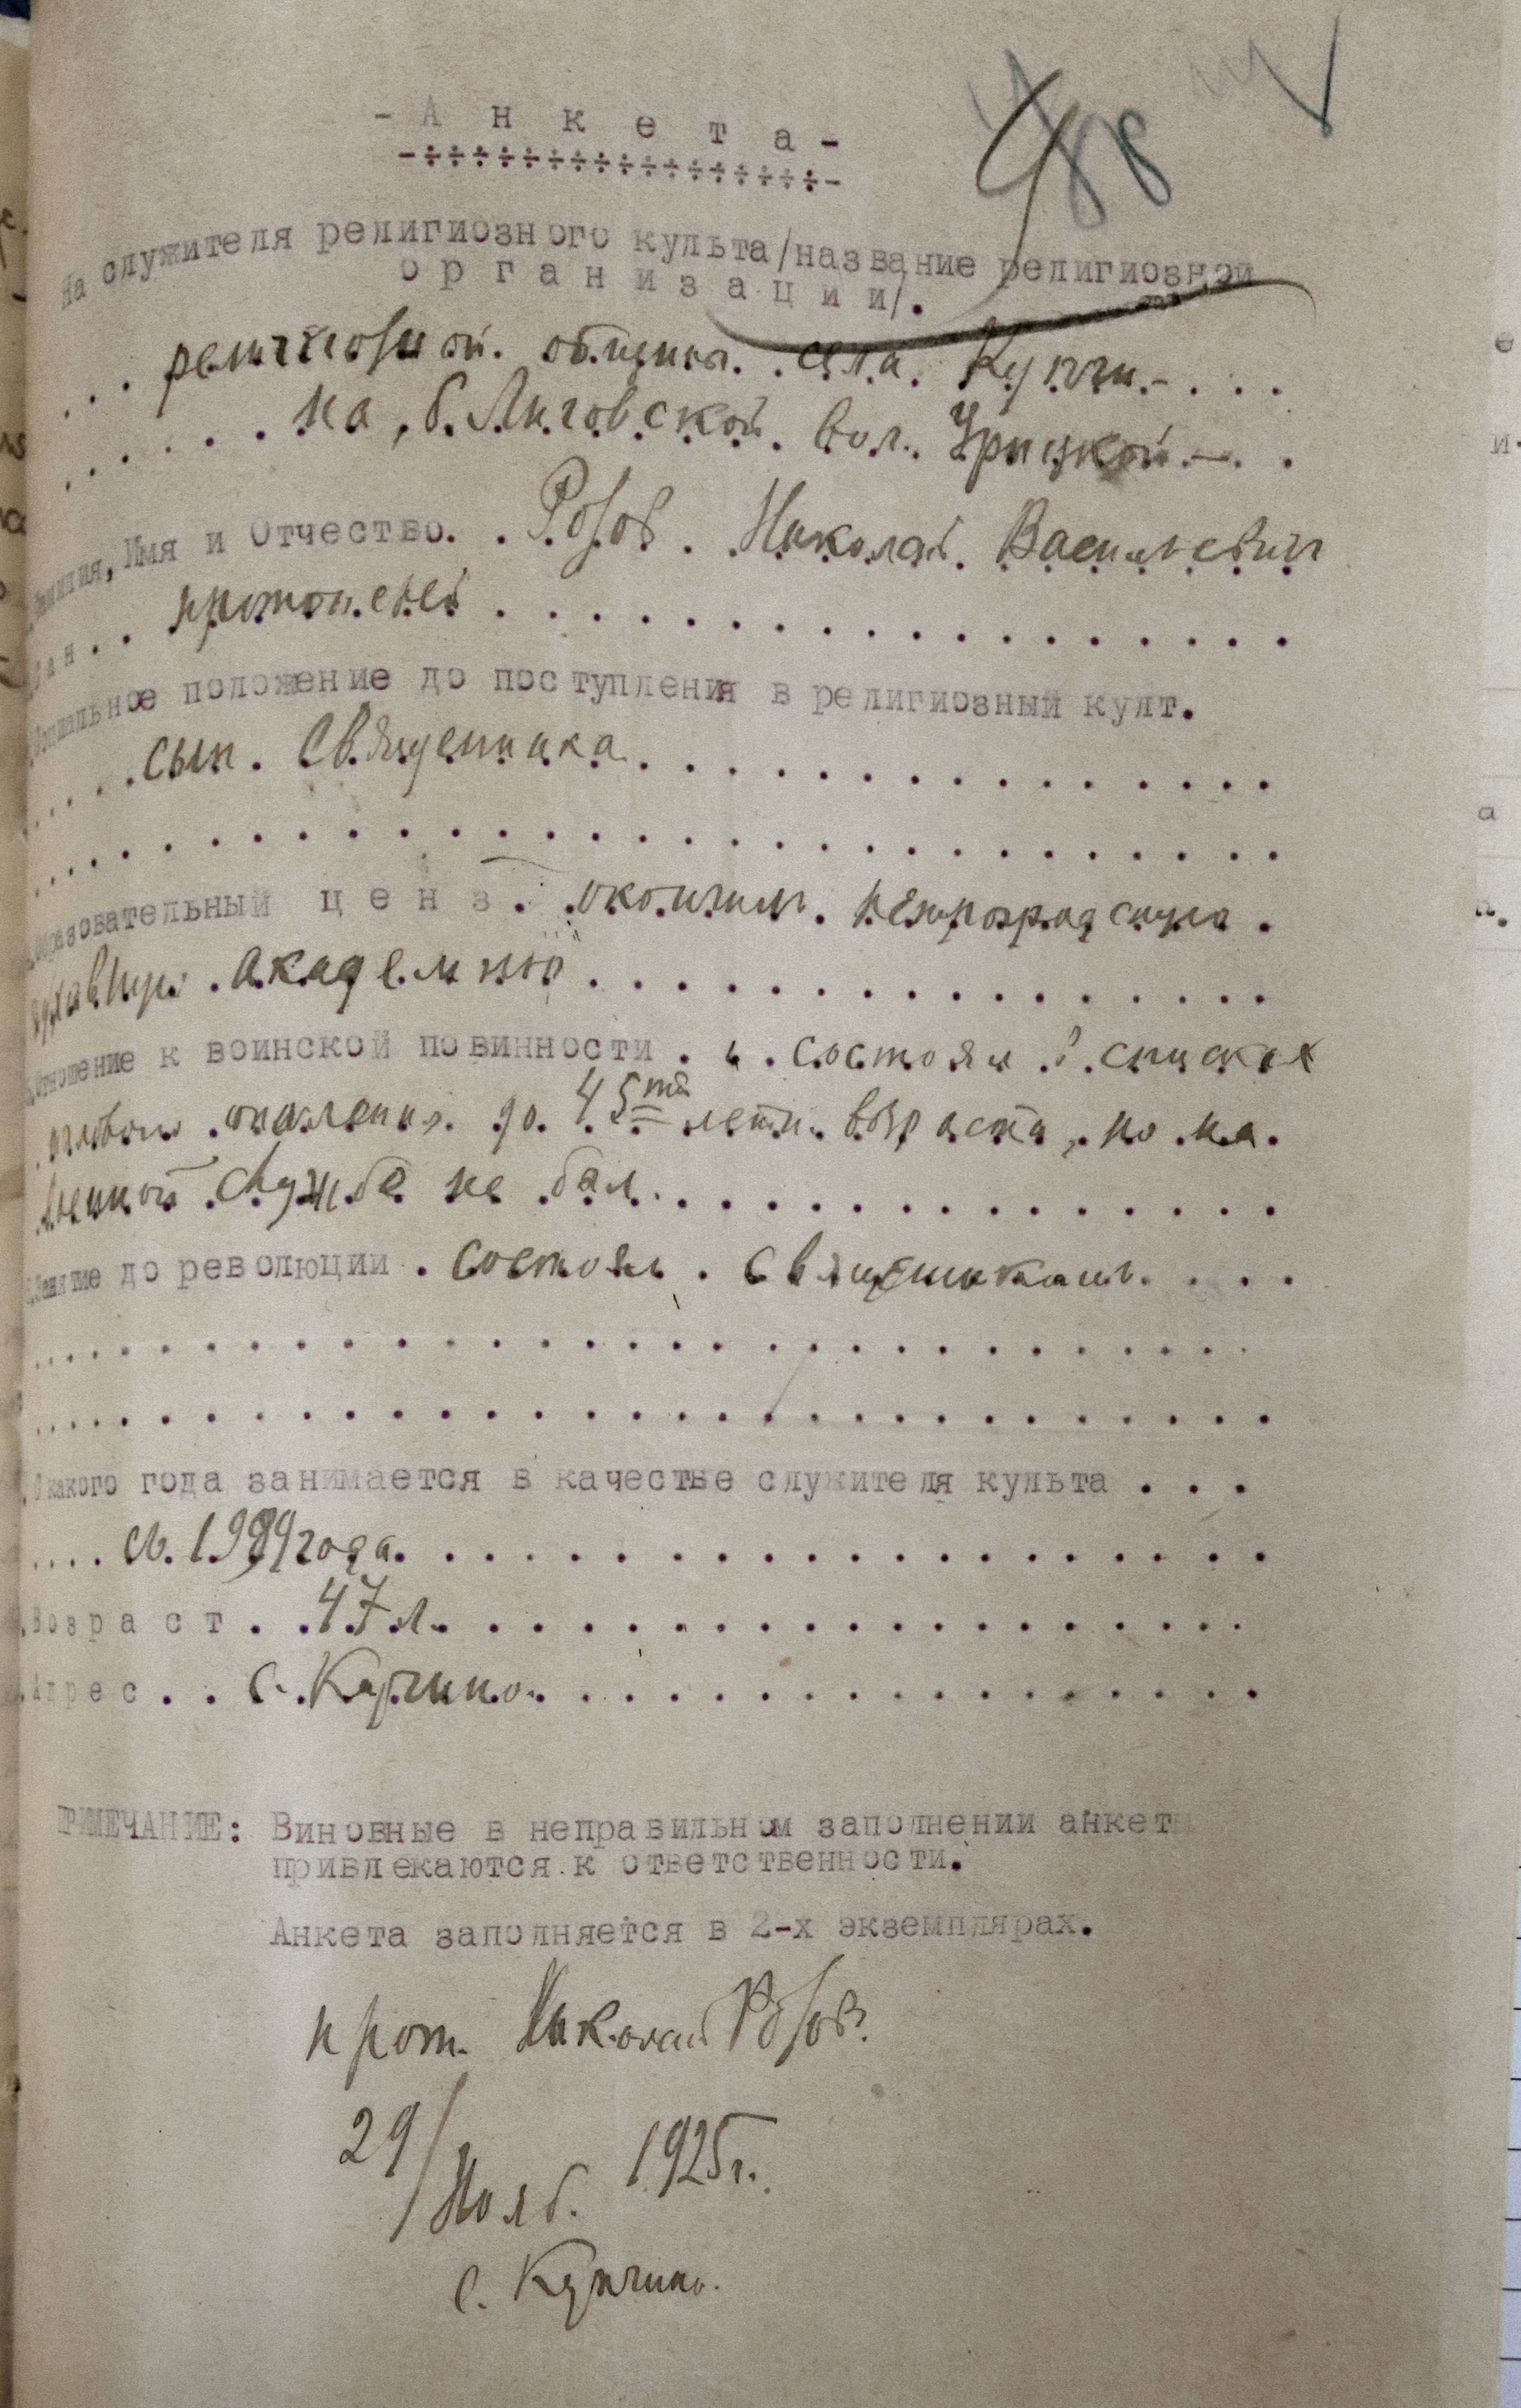 - А н к е т а -
88
На служителя религиозного культа/название религиозной
о р г а н и з а ц и и/.
религиозной общины села Купчи-
на, б. Лиговской вол. Урицкой
Фамилия, Имя и Отчество. . Розов Николай Васильевич
Сан . . протоиерей
Социальное положение до поступления в религиозный култ.
сын священника
Образовательный ц е н з . окончил петроградскую
духовную академию
Отношение к воинской повинности . . состоял в списках
ополчения до 45ти летн. возраста, но на
военной службе не был.
Занятие до революции . состоял священником
С какого года занимается в качестве служителя культа . . .
года
Возраст . . 47 л.
Адрес . . с. Купчино
ПРИМЕЧАНИЕ: Виновные в неправильном заполнении анкеты
привлекаются к ответственности.
Анкета заполняется в 2-х экземплярах.
прот. Николай Розов.
29/
Нояб. 1925 г.
с. Купчино.